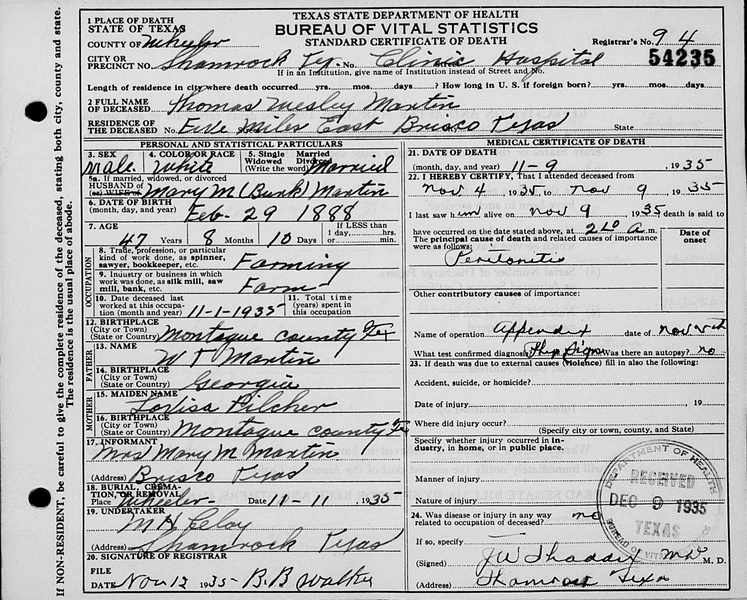 TEXAS STATE DEPARTMENT OF HEALTH
BUREAU OF VITAL STATISTICS
STANDARD CERTIFICATE OF DEATH
1 PLACE OF DEATH
STATE OF TEXAS
COUNTY OF Wheeler
Registrar's No. 94
CITY OR PRECINCT NO. Shamrock Tex. No. Clinic Hospital
54235
If in an Institution, give name of Institution instead of Street and No.
Length of residence in city where death occurred yrs. mos. days? How long in U. S. if foreign born? yrs. mos. days
2 FULL NAME OF DECEASED Thomas Wesley Martin
RESIDENCE OF THE DECEASED No. Five Miles East Brisco Texas State
PERSONAL AND STATISTICAL PARTICULARS
3. SEX Male
4. COLOR OR RACE White
5. Single Married Widowed Divorced (Write the word) Married
5a. If married, widowed, or divorced
HUSBAND OF (or) WIFE OF Mary M (Bunk) Martin
6. DATE OF BIRTH (month, day, and year) Feb- 29 1888
7. AGE 47 Years 8 Months 10 Days If LESS than 1 day, hrs. or min.
OCCUPATION
8. Trade, profession, or particular kind of work done, as spinner, sawyer, bookkeeper, etc. Farming
9. Industry or business in which work was done, as silk mill, saw mill, bank, etc. Farm
10. Date deceased last worked at this occupation (month and year) 11-1-1935
11. Total time (years) spent in this occupation
12. BIRTHPLACE (City or Town) (State or Country) Montague County Tex
FATHER
13. NAME W T Martin
14. BIRTHPLACE (City or Town) (State or Country) Georgia
MOTHER
15. MAIDEN NAME Pilcher
16. BIRTHPLACE (City or Town) (State or Country) Montague County Tex
17. INFORMANT Mrs Mary M Martin
(Address) Brisco Texas
18. BURIAL, CREMATION, OR REMOVAL
Place Wheeler Date 11-11 1935
19. UNDERTAKER M H
(Address) Shamrock Texas
20. SIGNATURE OF REGISTRAR
FILE DATE Nov 12 1935 B.B Walker
MEDICAL CERTIFICATE OF DEATH
21. DATE OF DEATH (month, day, and year) 11-9 , 1935
22. I HEREBY CERTIFY, That I attended deceased from
Nov 4 1935 to Nov 9 1935
I last saw him alive on Nov 9 1935 death is said to
have occurred on the date stated above, at 210 A m.
The principal cause of death and related causes of importance were as follows:
Date of onset
Peritonitis
Other contributory causes of importance:
Name of operation Appendix date of Nov 5th
What test confirmed diagnosis Phy Signs Was there an autopsy? no
23. If death was due to external causes (Violence) fill in also the following:
Accident, suicide, or homicide?
Date of injury 19
Where did injury occur?
(Specify city or town, county, and State)
Specify whether injury occurred in industry, in home, or in public place.
Manner of injury
Nature of injury
24. Was disease or injury in any way related to occupation of deceased? no
If so, specify
(Signed) M. D.
(Address) Shamrock Texas
DEPARTMENT OF HEALTH
RECEIVED
DEC 9 1935
TEXAS
BUREAU OF VITAL
IF NON-RESIDENT, be careful to give the complete residence of the deceased, stating both city, county and state.
The residence is the usual place of abode.